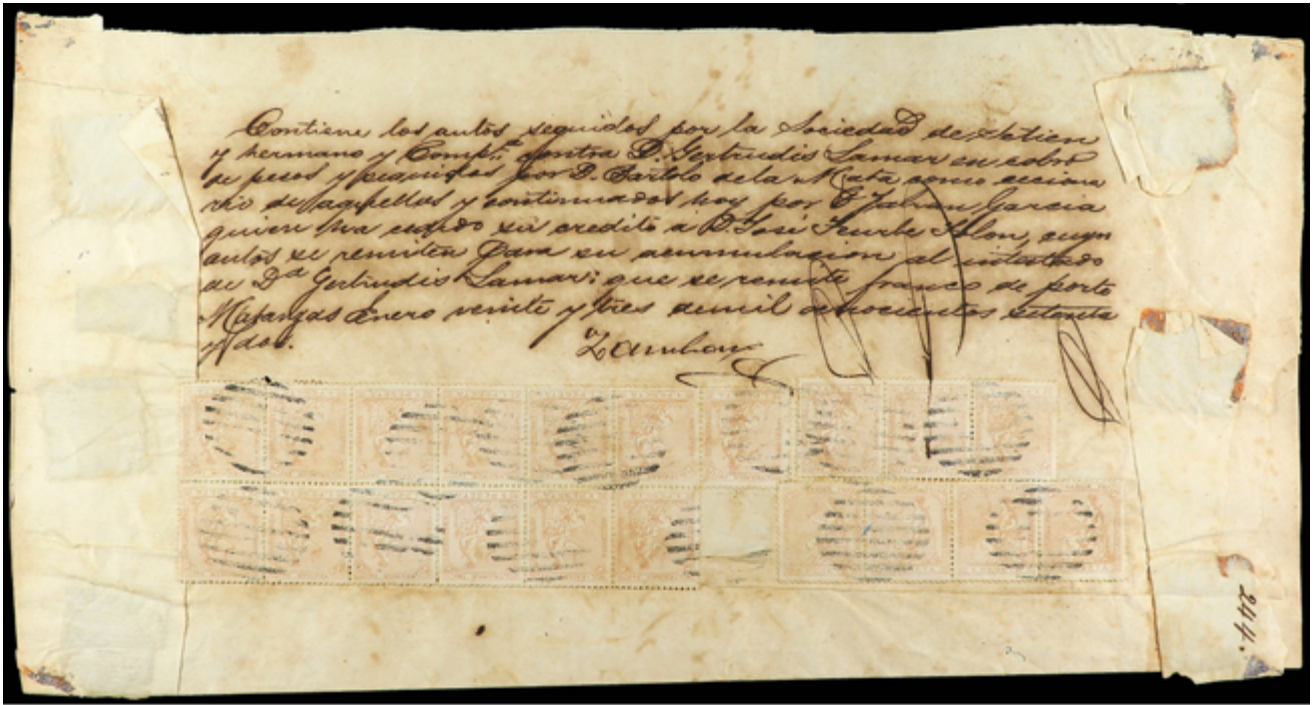 Contiene los autos seguidos por la Sociedad de
y hermano y Comp.ª contra D. Gertrudis Lamar en cobro
de pesos y seguidos por D. Bartolo de la Mata como
rio de aquellos y continuados hoy por Garcia
quien ha cedido su credito á D. José cuyos
autos se remiten para su acumulacion al intestado
de Dª Gertrudis Lamar: que se remite franco de porte
Matanzas Enero veinte y tres de mil ochocientos setenta
y dos.
244.